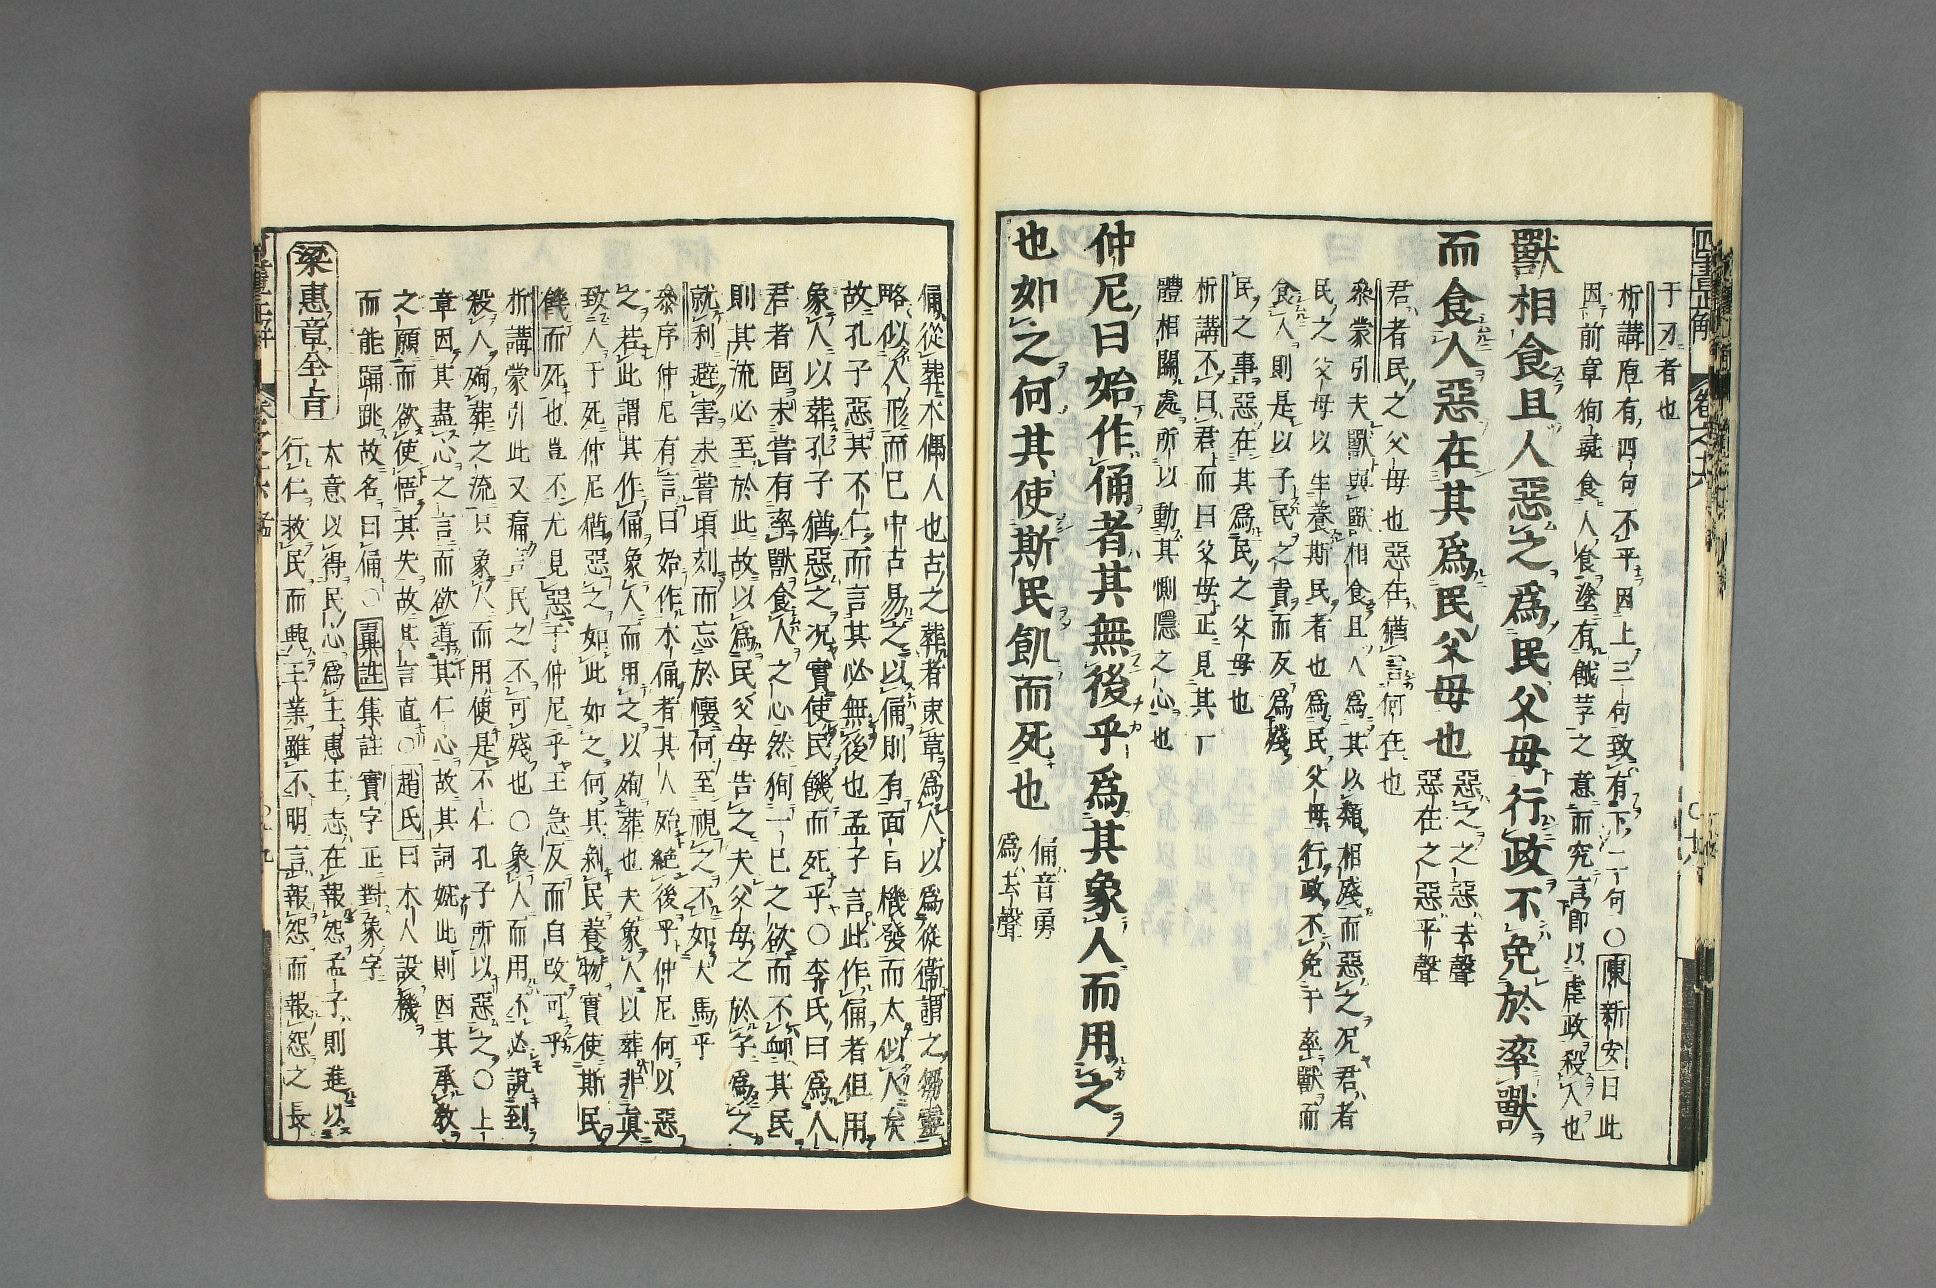 于刃者也
析講庖有四句不平因上三句致有下二句○陳新安曰此
因前章狗彘食人食塗有餓莩之意而究言即以虐政殺人也
獸相食且人惡之爲民父母行政不免於率獸
而食人惡在其爲民父母也惡之之惡去聲
惡在之惡平聲
君者民之父母也惡在猶言何在也
叅蒙引夫獸與獸相食且人爲其以類相殘而惡之况君者
民之父母以生養斯民者也爲民父母行政不免于率獸而
食人則是以子民之責而反爲殘
民之事惡在其爲民之父母也
析講不曰君而曰父母正見其一
體相關處所以動其惻隱之心也
仲尼曰始作俑者其無後乎爲其象人而用之
也如之何其使斯民飢而死也俑音勇
爲去聲
俑從葬木偶人也古之葬者束草爲人以爲從衛謂之芻靈
略似人形而已中古易之以俑則有面目機發而太似人矣
故孔子惡其不仁而言其必無後也孟子言此作俑者但用
象人以葬孔子猶惡之况實使民饑而死乎○李氏曰爲人
君者固未嘗有率獸食人之心然狥一己之欲而不恤其民
則其流必至於此故以爲民父母告之夫父母之於子爲之
就利避害未嘗頃刻而忘於懷何至視之不如犬馬乎
叅序仲尼有言曰始作木俑者其人殆絕後乎仲尼何以惡
之若此謂其作俑象人而用之以殉葬也夫象人以葬非真
致人于死仲尼猶惡之如此如之何其剝民養物實使斯民
饑而死也豈不尤見惡于仲尼乎王急反而自改可乎
析講蒙引此又痛言民之不可殘也○象人而用不必說到
殺人殉葬之流只象人而用便是不仁孔子所以惡之○上
章因其盡心之言而欲導其仁心故其詞婉此則因其承教
之願而欲使悟其失故其言直○趙氏曰木人設機
而能踊跳故名曰俑○異註集註實字正對象字
梁惠章全旨
大意以得民心爲主惠王志在報怨孟子則進以
行仁救民而興王業雖不明言報怨而報怨之長